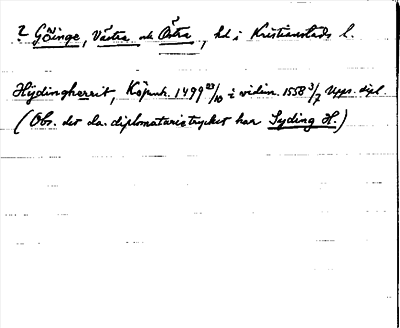 ? Göinge, Västra och Östra, hd i Kristianstads l.
Hÿdingherrit, Köpnh. 1499 23/10 i vidim. 1558 3/7 Upps. dipl.
(Obs. det da. diplomatarietrycket har Syding H.)